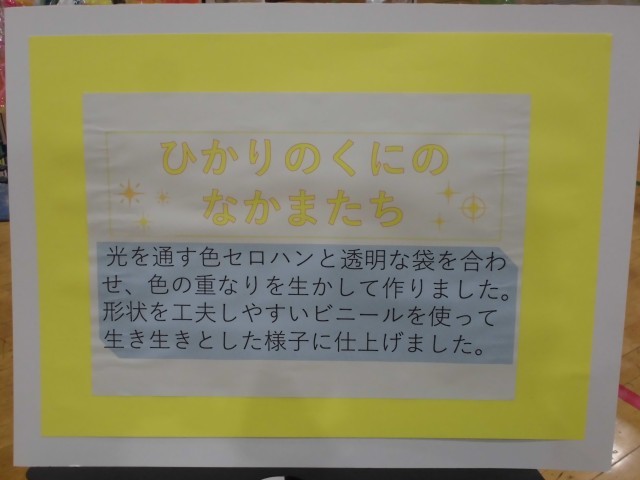 ひかりのくにの
なかまたち
光を通す色セロハンと透明な袋を合わ
せ、色の重なりを生かして作りました。
形状を工夫しやすいビニールを使って
生き生きとした様子に仕上げました。